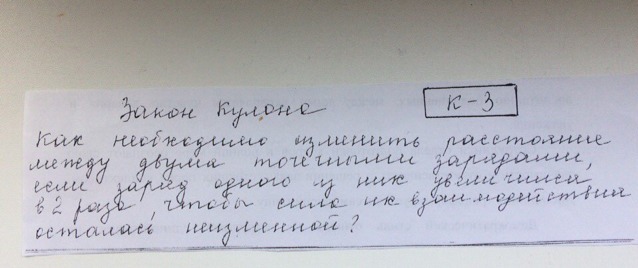 Закон Кулона
К-3
Как необходимо изменить расстояние
между двума точечными зарядами,
если заряд одного из них увеличился
в 2 раза, чтобы сила их взаимодействия
осталась неизменной?